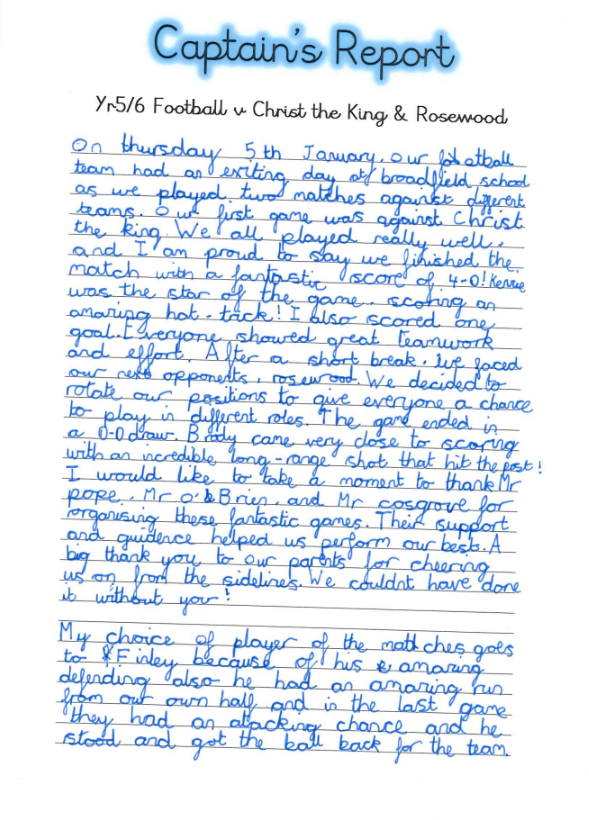 Captain's Report
Yr5/6 Football v Christ the King & Rosewood
On thursday 5th January. our football
team had an exiting day at broadfield school
as we played. two matches against different
teams. Our first game was against Christ
the king. We all played really well.
and I am proud to say we finished the
match with a fantastic score of 4-0!
was the star of the game. scoring an
amazing hat-trick! I also scored one
goal. Everyone showed great teamwork
and effort. After a short break. We faced
our next opponents, rosewood. We decided to
rotate our positions to give everyone a chance
to play in different roles. The game ended in
a 0-0 draw. Brady came very close to scoring
with an incredible long-range shot that hit the post!
I would like to take a moment to thank Mr
pope. Mr O'Brien and Mr cosgrove for
organising these fantastic games. Their support
and guidence helped us perform our best. A
big thank you to our parents for cheering
us on from the sidelines. We couldnt have done
it without you!
My choice of player of the matches goes
to Finley because of his amazing
defending also he had an amazing run
from our own half and in the last game
they had an atacking chance and he
stood and got the ball back for the team.